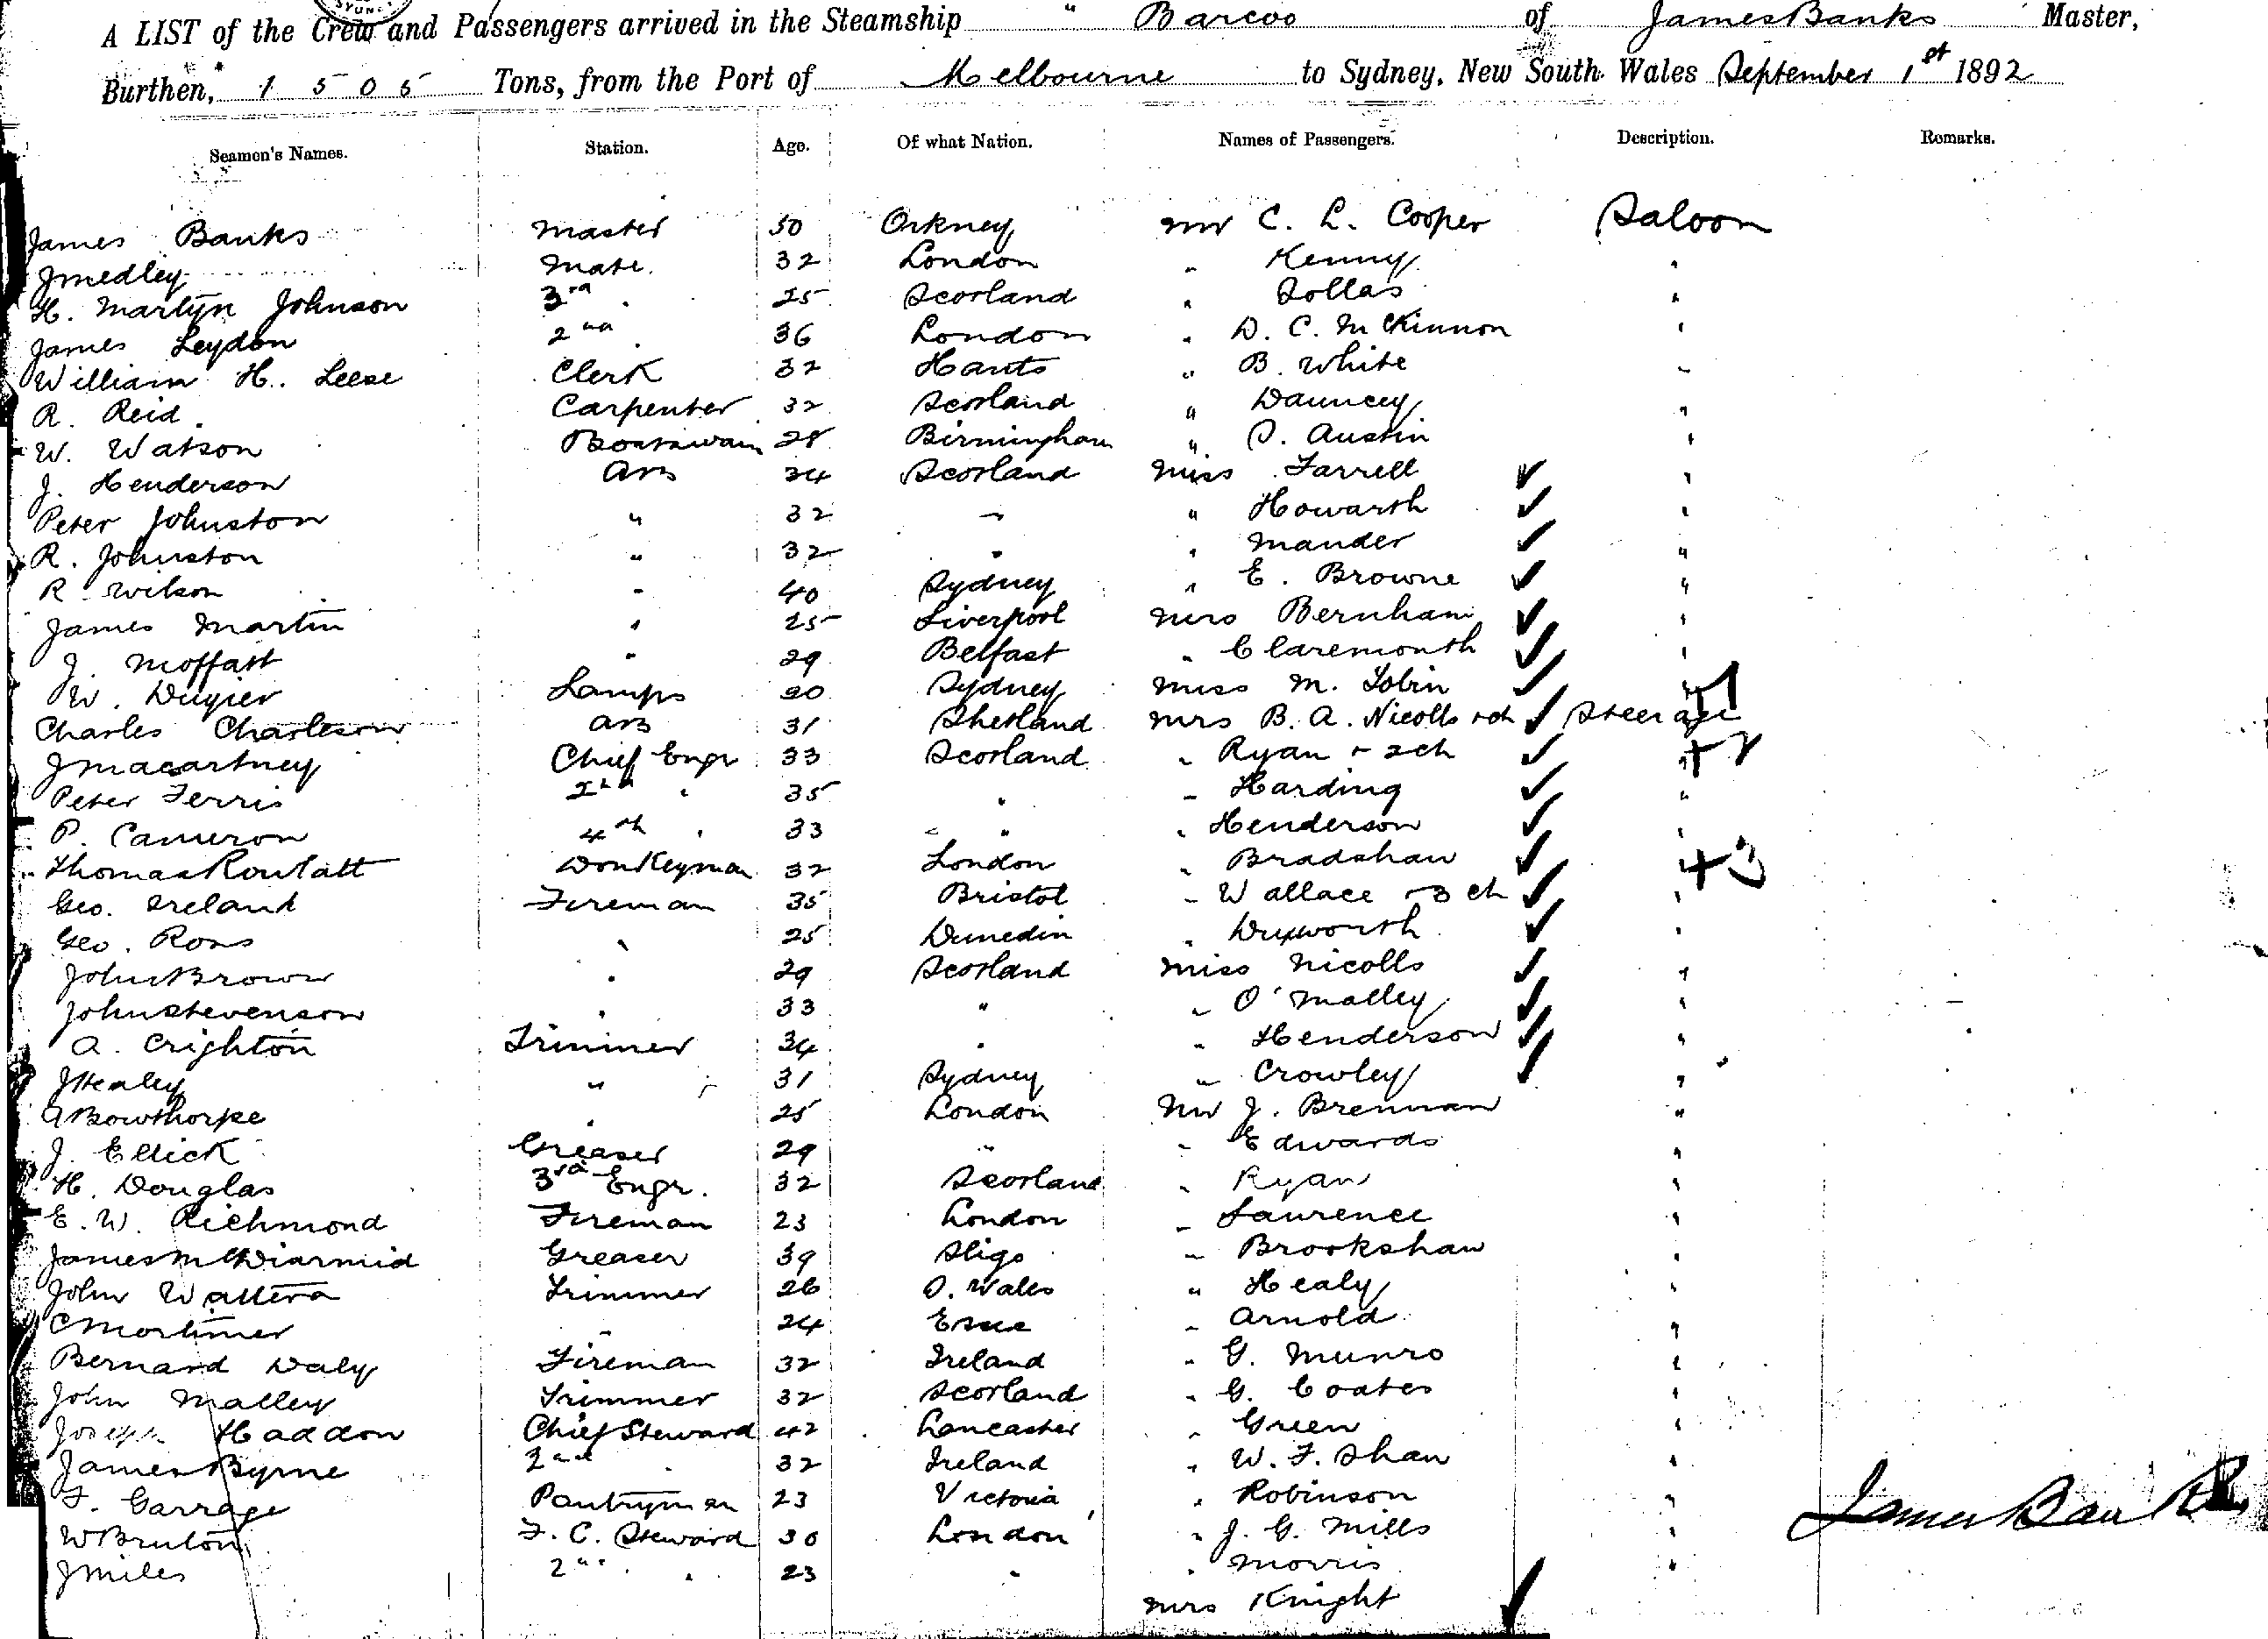 SYDNEY
A LIST of the Crew and Passengers arrived in the Steamship " Barcoo of James Banks Master,
Burthen, 1505 Tons, from the Port of Melbourne to Sydney, New South Wales September 1st 1892
Seamen's Names. Station. Age. Of what Nation. Names of Passengers. Description. Remarks.
James Banks Master 50 Orkney Mr C. L. Cooper Saloon
J Medley Mate 32 London " Kenny "
H. Martyn Johnson 3rd " 25 Scotland " Sollas "
James Leydon 2nd " 36 London " D. C. McKinnon "
William H. Leese Clerk 32 Hants " B. White "
R. Reid Carpenter 32 Scotland " Dauncey "
W. Watson Boatswain 28 Birmingham " S. Austin "
J. Henderson AB 34 Scotland Miss Farrell "
Peter Johnston " 32 " " Howarth "
R. Johnston " 32 " " Mander "
R Wilson " 40 Sydney " E. Browne "
James Martin " 25 Liverpool Mrs Bernham "
J. Moffatt " 29 Belfast " Claremonth "
W. Lamps 20 Sydney Miss M. Tobin "
Charles Charleson AB 31 Shetland Mrs B. A. Nicolls + ch Steerage
J Macartney Chief Engr 33 Scotland " Ryan + 2 ch " +2
Peter Ferris 2nd " 35 " " Harding "
P. Cameron 4th " 33 " " Henderson "
Thomas Rowlatt Donkeyman 32 London " Bradshaw " +3
Geo. Ireland Fireman 35 Bristol " Wallace + 3 ch "
Geo. Ross " 25 Dunedin " Duxworth "
John Brown " 29 Scotland Miss Nicolls "
John Stevenson " 33 " " O'Malley "
A. Crighton Trimmer 34 " " Henderson "
J Healey " 31 Sydney " Crowley "
A Bowthorpe " 25 London Mr J. Brennan "
J. Ellick Greaser 29 " " Edwards "
H. Douglas 3rd Engr. 32 Scotland " Ryan "
E. W. Richmond Fireman 23 London " Laurence "
James McDiarmid Greaser 39 Sligo " Brookshaw "
John Watters Trimmer 26 S. Wales " Healy "
C Mortimer " 24 " Arnold "
Bernard Daly Fireman 32 Ireland " G. Munro "
John Malley Trimmer 32 Scotland " G. Coates "
Joseph Haddon Chief Steward 42 Lancaster " Green "
James Byrne 2nd " 32 Ireland " W. F. Shaw "
F. Garrage Pantryman 23 Victoria " Robinson "
W Bruton F. C. Steward 30 London " J. G. Mills "
J Miles 2nd " 23 " " Morris "
Mrs Knight
James Banks